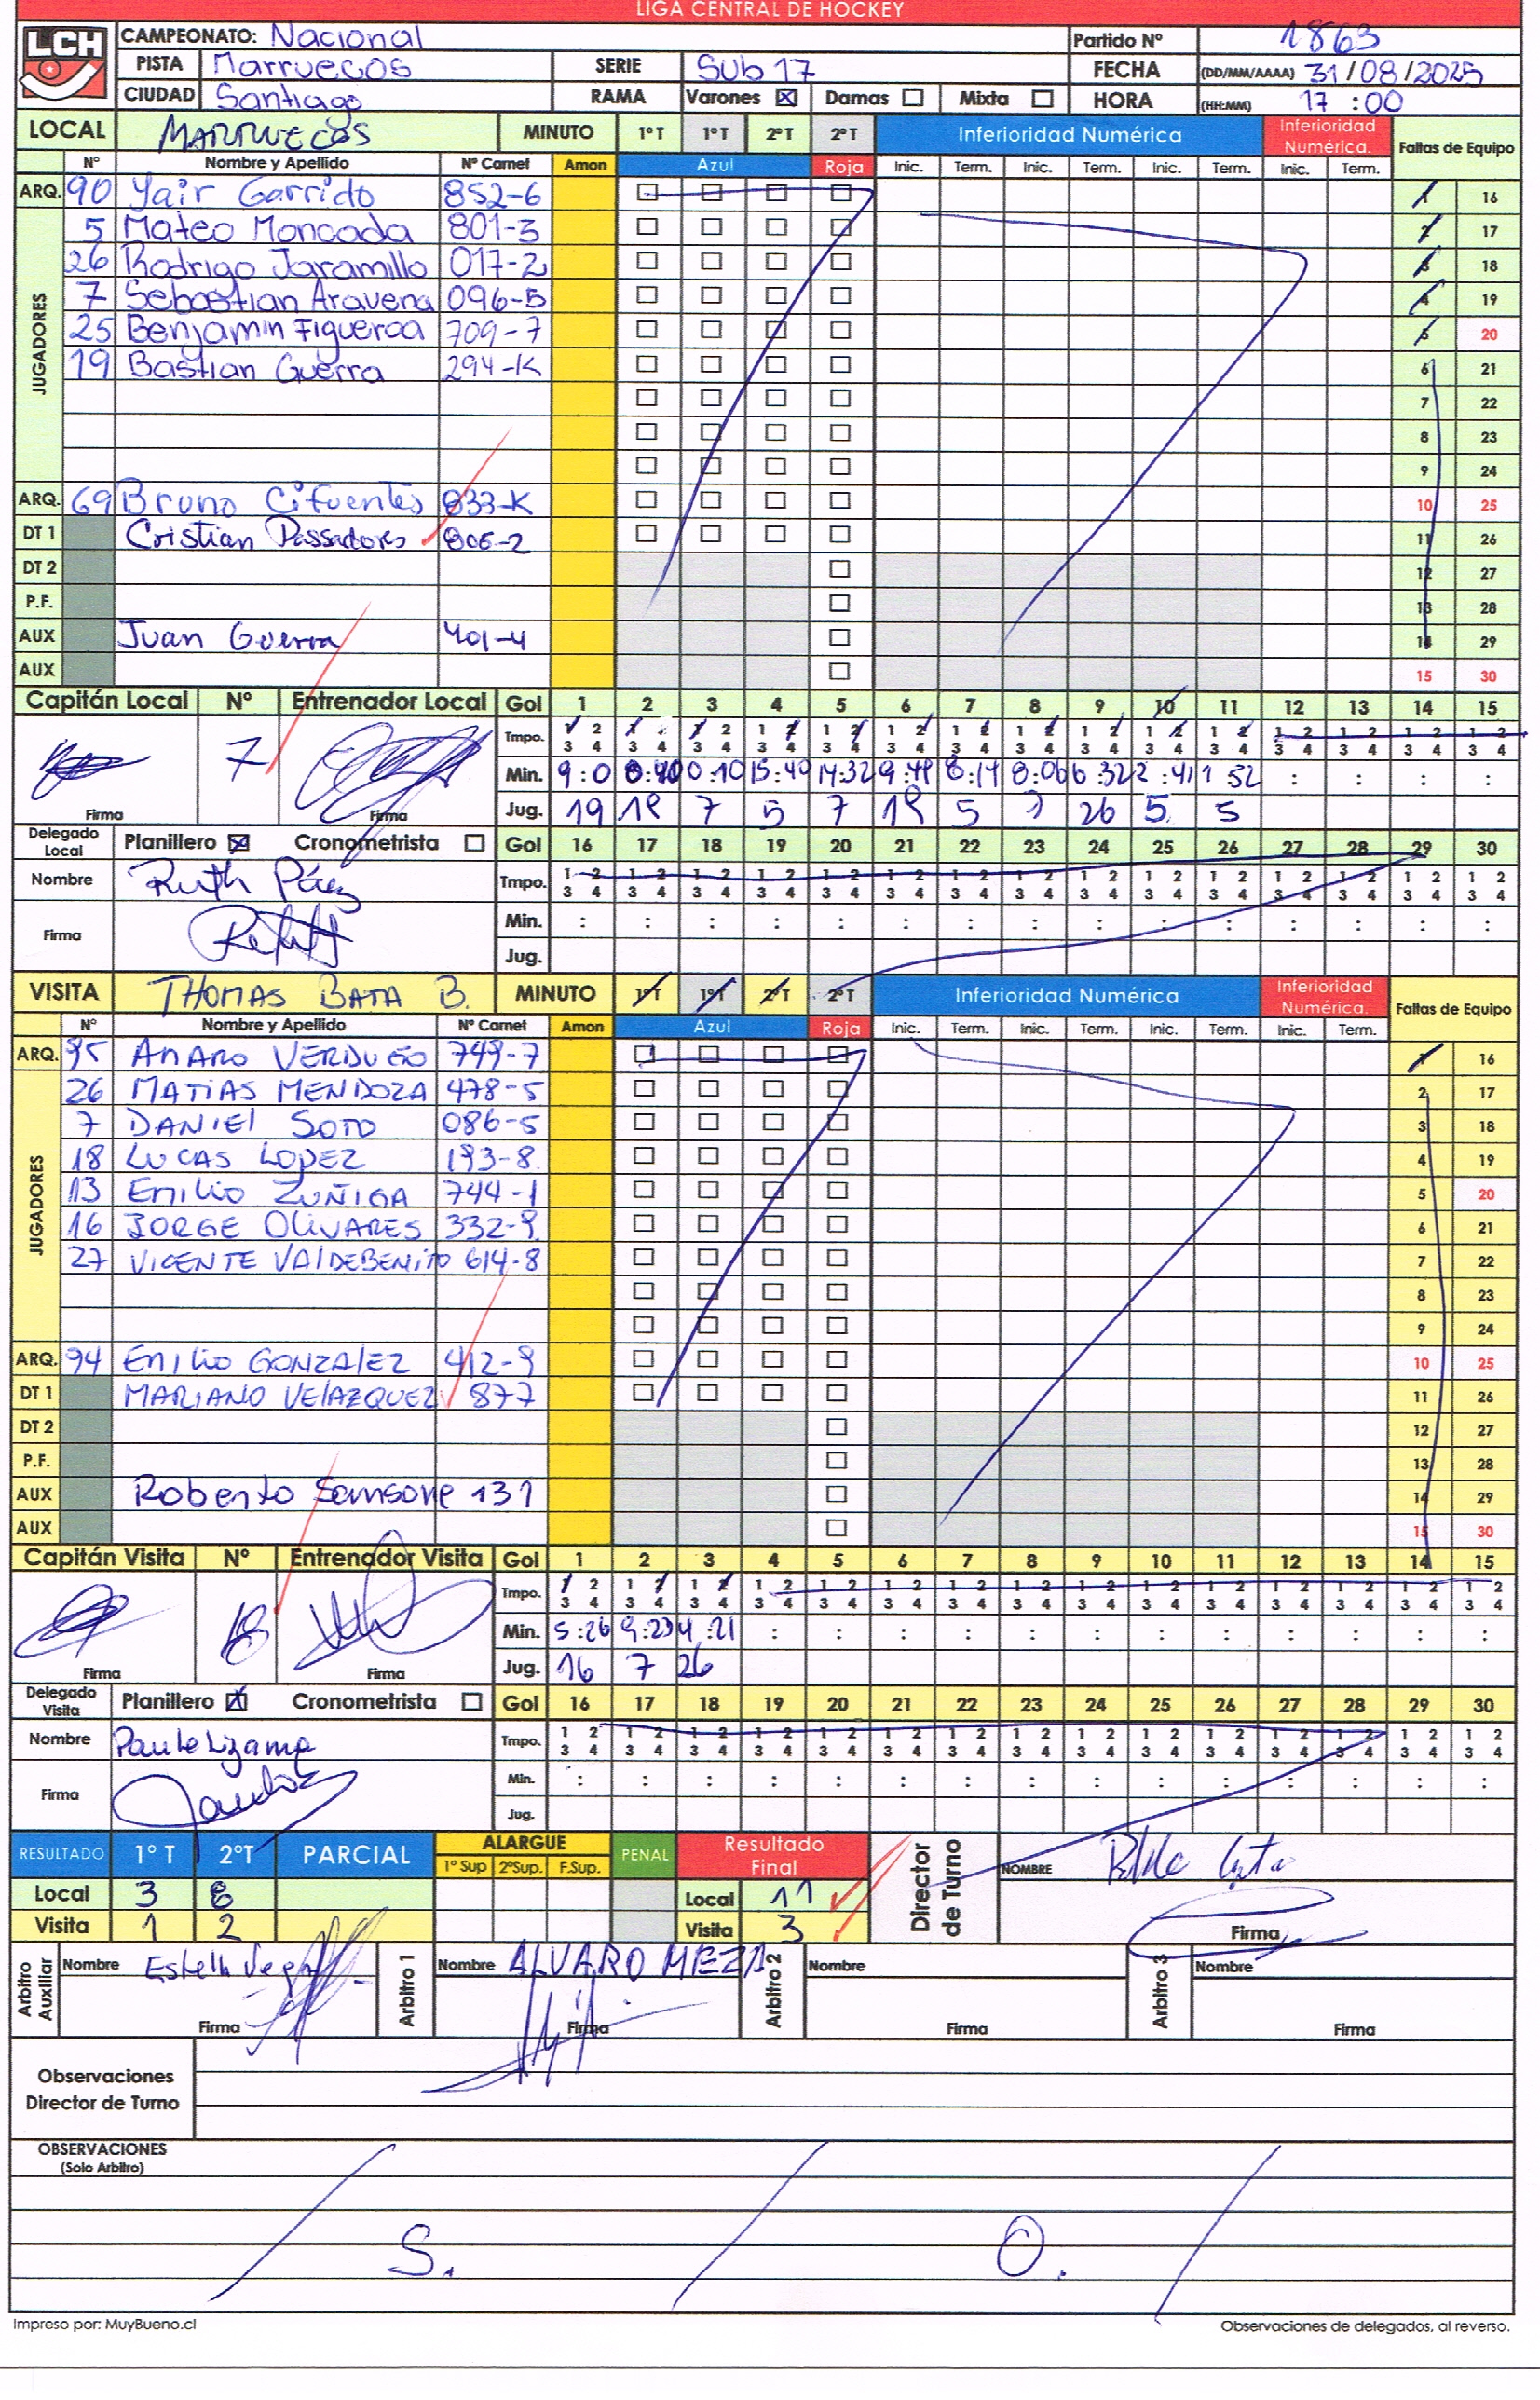 LIGA CENTRAL DE HOCKEY
LCH
CAMPEONATO: Nacional Partido Nº 1863
PISTA Marruecos SERIE Sub 17 FECHA (DD/MM/AAAA) 31/08/2025
CIUDAD Santiago RAMA Varones ☒ Damas ☐ Mixta ☐ HORA (HH:MM) 17:00
LOCAL MARRUECOS MINUTO 1º T 1º T 2º T 2º T Inferioridad Numérica Inferioridad Numérica. Faltas de Equipo
Nº Nombre y Apellido Nº Carnet Amon Azul Roja Inic. Term. Inic. Term. Inic. Term. Inic. Term.
ARQ. 90 Yair Garrido 852-6 1 16
JUGADORES
5 Mateo Moncada 801-3 2 17
26 Rodrigo Jaramillo 017-2 3 18
7 Sebastian Aravena 096-5 4 19
25 Benjamin Figueroa 709-7 5 20
19 Bastian Guerra 294-K 6 21
7 22
8 23
9 24
ARQ. 69 Bruno Cifuentes 833-K 10 25
DT 1 Cristian Passadores 806-2 11 26
DT 2 12 27
P.F. 13 28
AUX Juan Guerra 401-4 14 29
AUX 15 30
Capitán Local Nº Entrenador Local Gol 1 2 3 4 5 6 7 8 9 10 11 12 13 14 15
Tmpo. 1 2 1 2 1 2 1 2 1 2 1 2 1 2 1 2 1 2 1 2 1 2 1 2 1 2 1 2 1 2
3 4 3 4 3 4 3 4 3 4 3 4 3 4 3 4 3 4 3 4 3 4 3 4 3 4 3 4 3 4
7 Min. 0:10 15:40 14:32 8:14 8:06 6:32 2:41 1 52 : : : :
Firma Firma Jug. 19 7 5 7 5 26 5 5
Delegado Local Planillero ☒ Cronometrista ☐ Gol 16 17 18 19 20 21 22 23 24 25 26 27 28 29 30
Nombre Ruth Páez Tmpo. 1 2 1 2 1 2 1 2 1 2 1 2 1 2 1 2 1 2 1 2 1 2 1 2 1 2 1 2 1 2
3 4 3 4 3 4 3 4 3 4 3 4 3 4 3 4 3 4 3 4 3 4 3 4 3 4 3 4 3 4
Firma Min. : : : : : : : : : : : : : : :
Jug.
VISITA THOMAS BATA B. MINUTO 1º T 1º T 2º T 2º T Inferioridad Numérica Inferioridad Numérica. Faltas de Equipo
Nº Nombre y Apellido Nº Carnet Amon Azul Roja Inic. Term. Inic. Term. Inic. Term. Inic. Term.
ARQ. 95 AMARO VERDUGO 749-7 1 16
JUGADORES
26 MATIAS MENDOZA 478-5 2 17
7 DANIEL SOTO 086-5 3 18
18 LUCAS LOPEZ 193-8 4 19
13 EMILIO ZUÑIGA 744-1 5 20
16 JORGE OLIVARES 332-9 6 21
27 VICENTE VALDEBENITO 614-8 7 22
8 23
9 24
ARQ. 94 EMILIO GONZALEZ 412-9 10 25
DT 1 MARIANO VELAZQUEZ 877 11 26
DT 2 12 27
P.F. 13 28
AUX Roberto Sansone 131 14 29
AUX 15 30
Capitán Visita Nº Entrenador Visita Gol 1 2 3 4 5 6 7 8 9 10 11 12 13 14 15
Tmpo. 1 2 1 2 1 2 1 2 1 2 1 2 1 2 1 2 1 2 1 2 1 2 1 2 1 2 1 2 1 2
3 4 3 4 3 4 3 4 3 4 3 4 3 4 3 4 3 4 3 4 3 4 3 4 3 4 3 4 3 4
18 Min. 5:26 9:23 4:21 : : : : : : : : : : : :
Firma Firma Jug. 16 7 26
Delegado Visita Planillero ☒ Cronometrista ☐ Gol 16 17 18 19 20 21 22 23 24 25 26 27 28 29 30
Nombre Paule Lizama Tmpo. 1 2 1 2 1 2 1 2 1 2 1 2 1 2 1 2 1 2 1 2 1 2 1 2 1 2 1 2 1 2
3 4 3 4 3 4 3 4 3 4 3 4 3 4 3 4 3 4 3 4 3 4 3 4 3 4 3 4 3 4
Firma Min. : : : : : : : : : : : : : : :
Jug.
RESULTADO 1º T 2ºT PARCIAL ALARGUE PENAL Resultado Final Director de Turno NOMBRE
1º Sup 2ºSup. F.Sup.
Local 3 8 Local 11
Visita 1 2 Visita 3 Firma
Arbitro Auxiliar Nombre Estella Vega Arbitro 1 Nombre ALVARO MEZA Arbitro 2 Nombre Arbitro 3 Nombre
Firma Firma Firma Firma
Observaciones
Director de Turno
OBSERVACIONES
(Solo Arbitro)
S. O.
Impreso por: MuyBueno.cl Observaciones de delegados, al reverso.